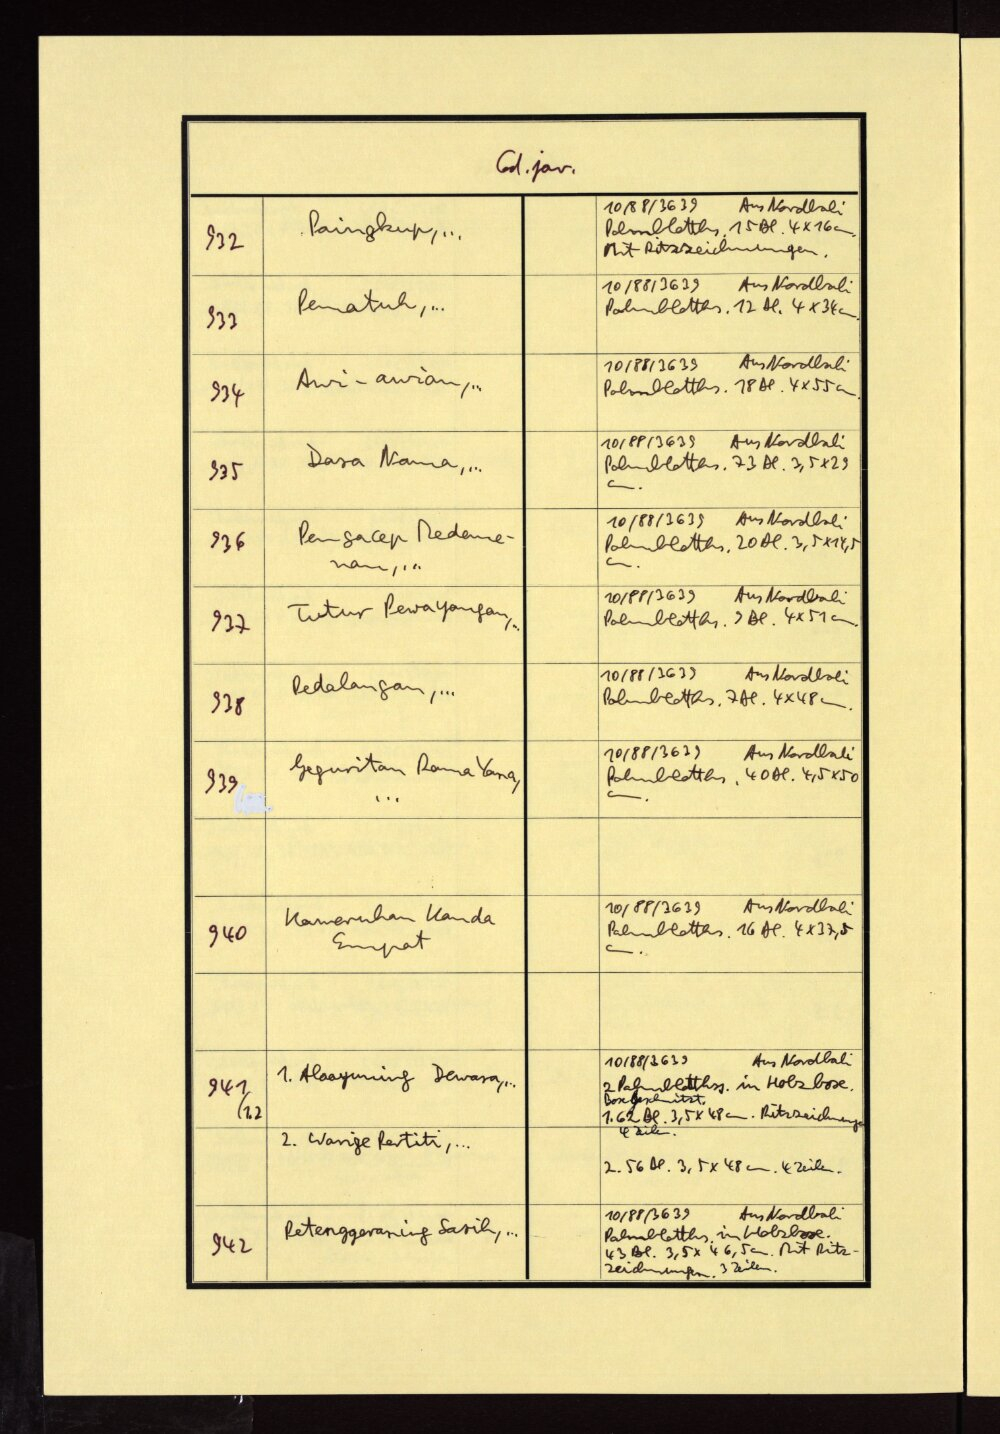 Cod. jav.
932
Paingkup,...
10/88/3639 Aus Nordbali
Palmblatths. 15 Bl. 4 x 16 cm.
Mit Ritzzeichnungen.
933
Pematuh,...
10/88/3639 Aus Nordbali
Palmblatths. 12 Bl. 4 x 34 cm.
934
Awi-awian,...
10/88/3639 Aus Nordbali
Palmblatths. 18 Bl. 4 x 55 cm.
935
Dasa Nama,...
10/88/3639 Aus Nordbali
Palmblatths. 73 Bl. 3,5 x 29
cm.
936
Pengacep Medeme-
nan,...
10/88/3639 Aus Nordbali
Palmblatths. 20 Bl. 3,5 x 14,5
cm.
937
Tutur Pewayangan,..
10/88/3639 Aus Nordbali
Palmblatths. 9 Bl. 4 x 51 cm.
938
Pedalangan,...
10/88/3639 Aus Nordbali
Palmblatths. 7 Bl. 4 x 48 cm.
939
Geguritan Rama Yana,
...
10/88/3639 Aus Nordbali
Palmblatths. 40 Bl. 4,5 x 50
cm.
940
Kaweruhan Kanda
Empat
10/88/3639 Aus Nordbali
Palmblatths. 16 Bl. 4 x 37,5
cm.
941
/1.2
1. Alaayuning Dewasa,...
10/88/3639 Aus Nordbali
2 Palmblatthss. in Holzbox.
Box geschnitzt.
1. 62 Bl. 3,5 x 48 cm. Ritzzeichnungen
4 Zeilen.
2. Warige Pertiti,...
2. 56 Bl. 3,5 x 48 cm. 4 Zeilen.
942
Petenggeraning Sasih,...
10/88/3639 Aus Nordbali
Palmblatths. in Holzbox.
43 Bl. 3,5 x 46,5 cm. Mit Ritz-
zeichnungen. 3 Zeilen.